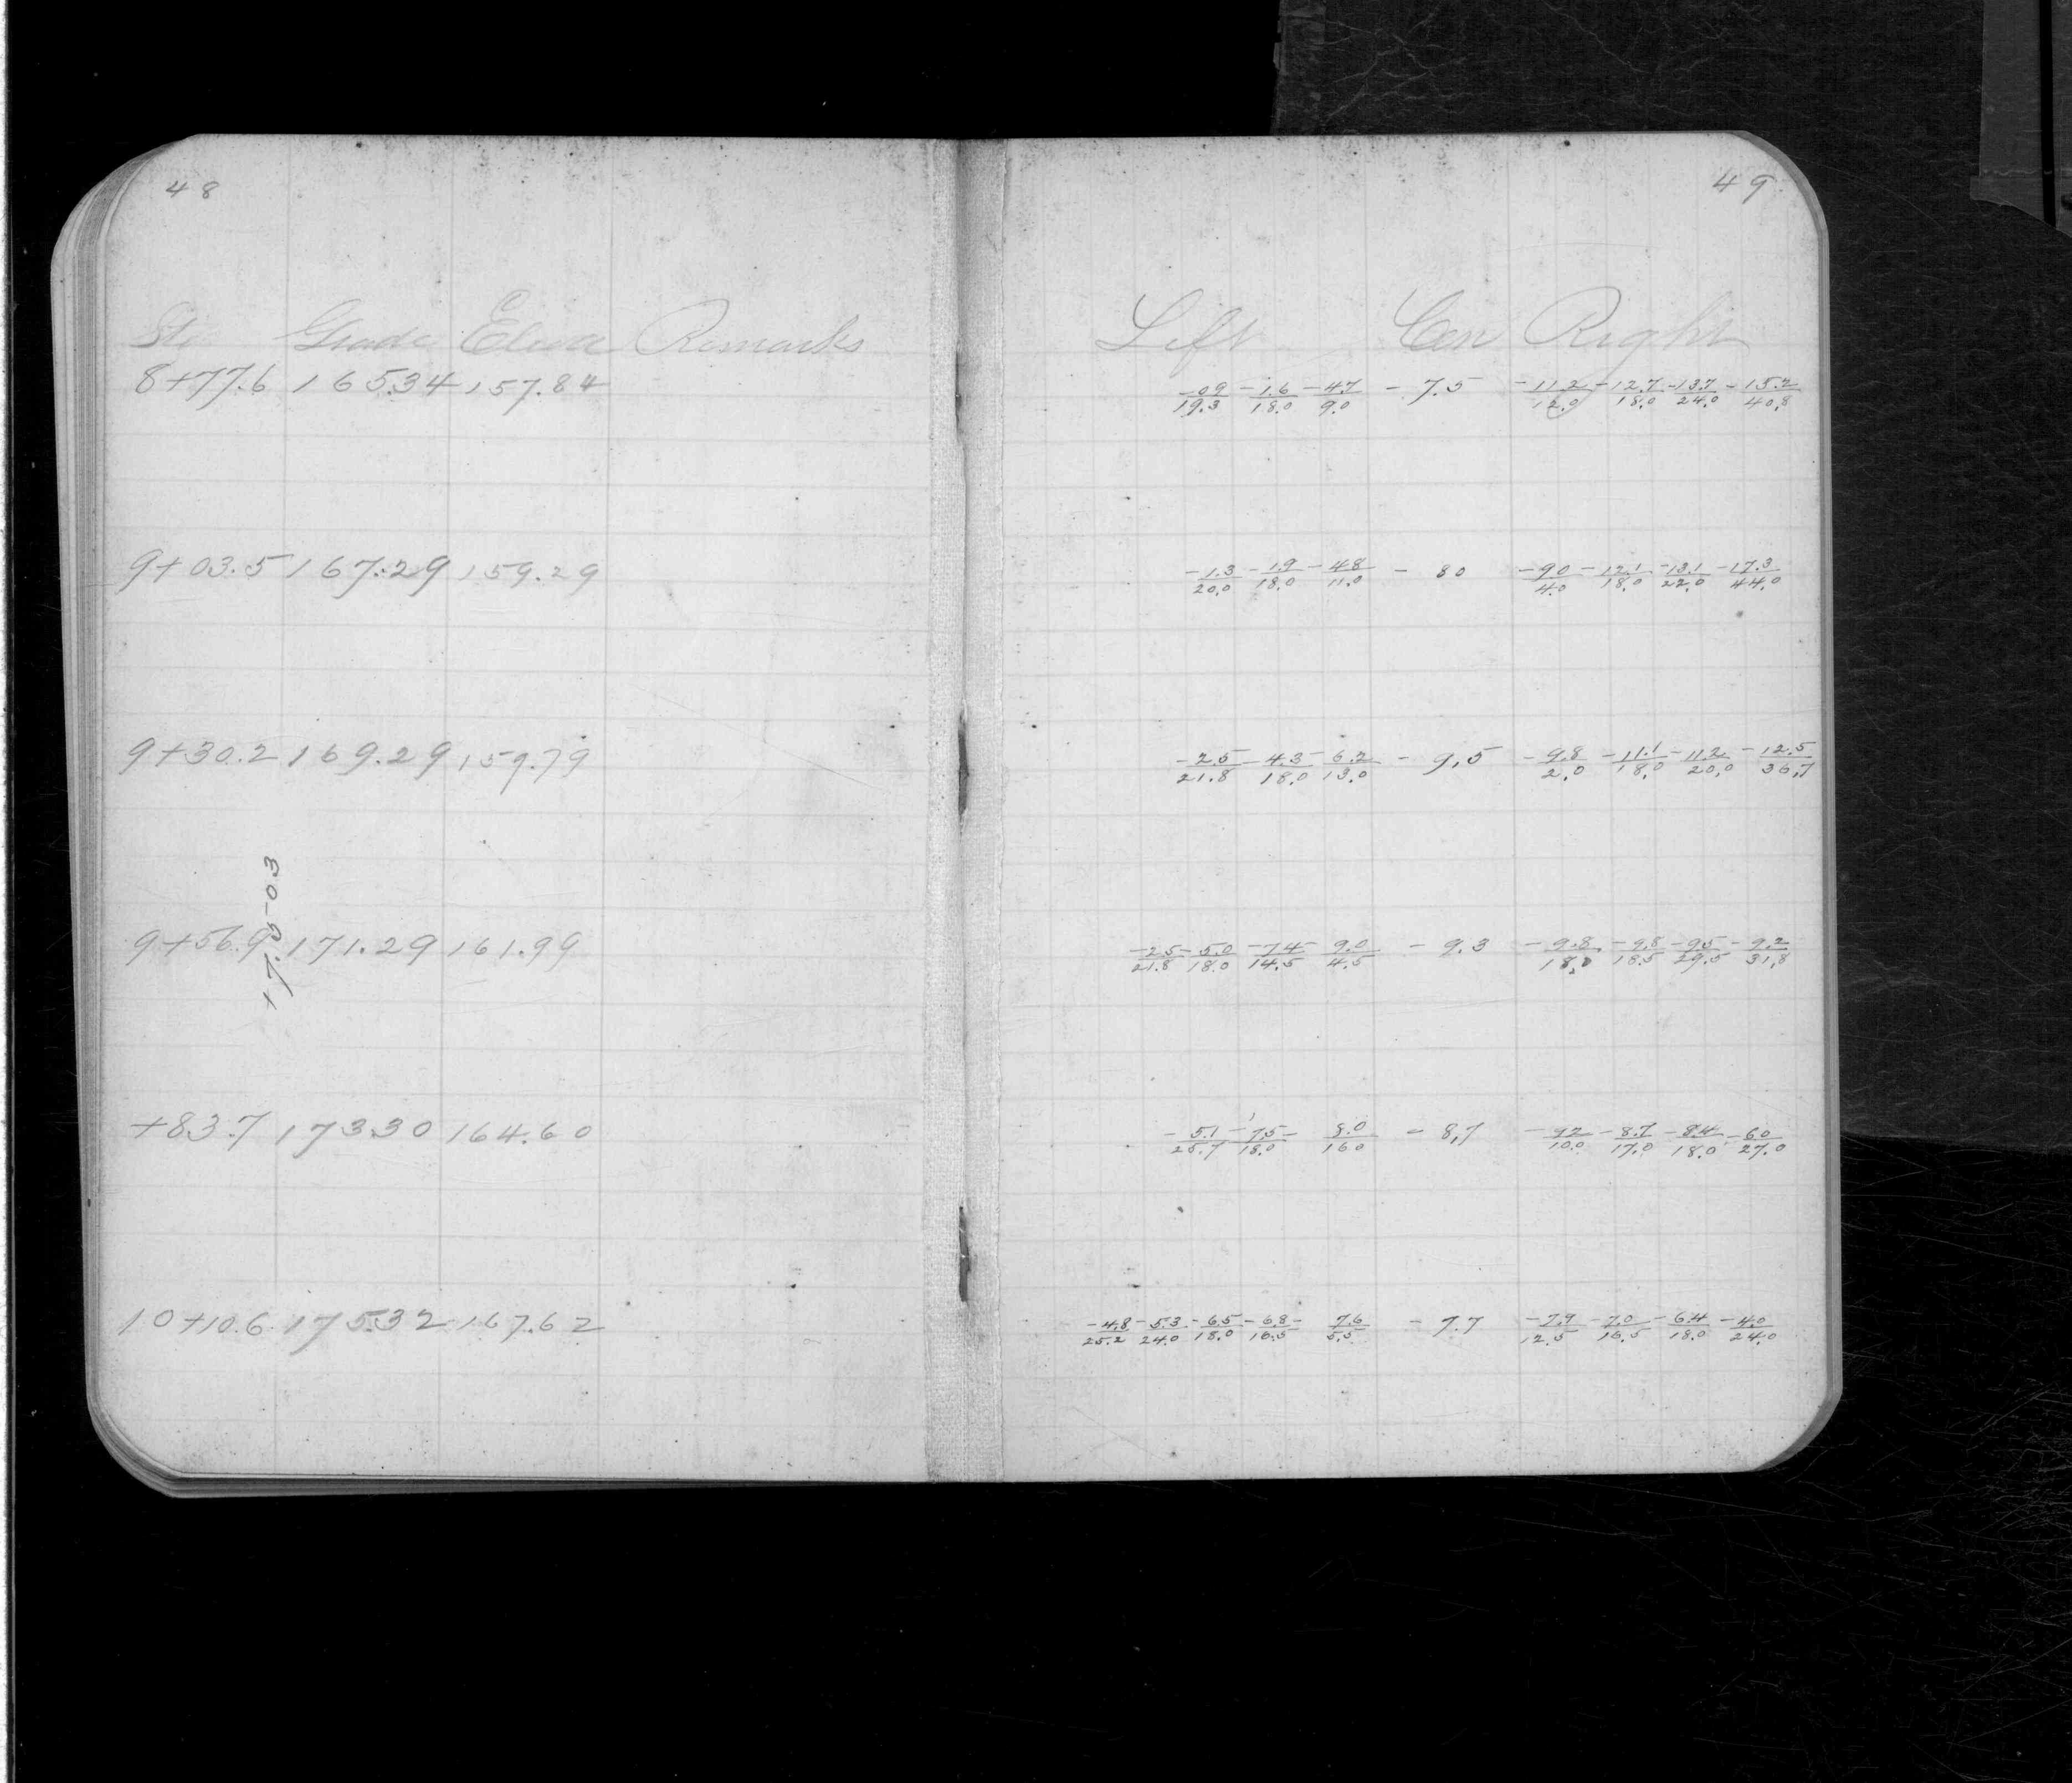 48
Sta Grade Eleva Remarks
8+77.6 165.34 157.84
9+03.5 167.29 159.29
9+30.2 169.29 159.79
9+56.9 171.29 161.99
+7.5-03
+83.7 173.30 164.60
10+10.6 175.32 167.62
49
Left Cen Right
-0.9/19.3 -1.6/18.0 -4.7/9.0 -7.5 -11.2/12.0 -12.7/18.0 -13.7/24.0 -15.2/40.8
-1.3/20.0 -1.9/18.0 -4.8/11.0 -80 -90/4.0 -12.1/18.0 -13.1/22.0 -17.3/44.0
-2.5/21.8 -4.3/18.0 -6.2/13.0 -9.5 -9.8/2.0 -11.1/18.0 -11.2/20.0 -12.5/36.7
-2.5/21.8 -5.0/18.0 -7.4/14.5 -9.0/4.5 -9.3 -9.8/18.0 -9.8/18.5 -9.5/29.5 -9.2/31.8
-5.1/25.7 -7.5/18.0 -8.0/16.0 -8.7 -9.2/10.0 -8.7/17.0 -8.4/18.0 -6.0/27.0
-4.8/25.2 -5.3/24.0 -6.5/18.0 -6.8/16.5 -7.6/5.5 -7.7 -7.9/12.5 -7.0/16.5 -6.4/18.0 -4.0/24.0